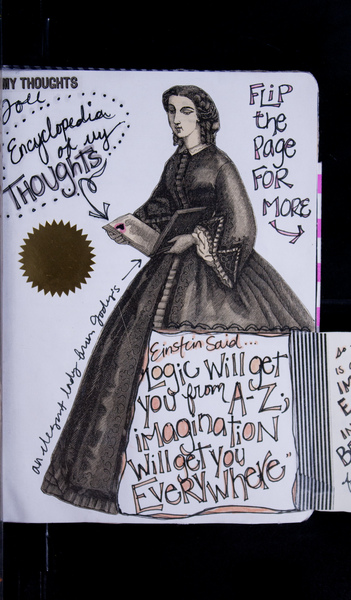 MY THOUGHTS
Encyclopedia
of my
THOUGHTS
FLiP
the
Page
FOR
MORE
an elegant lady from godey's
Einstein Said...
"Logic will get
you from A-Z;
imagination
will get you
EVERYwhere"